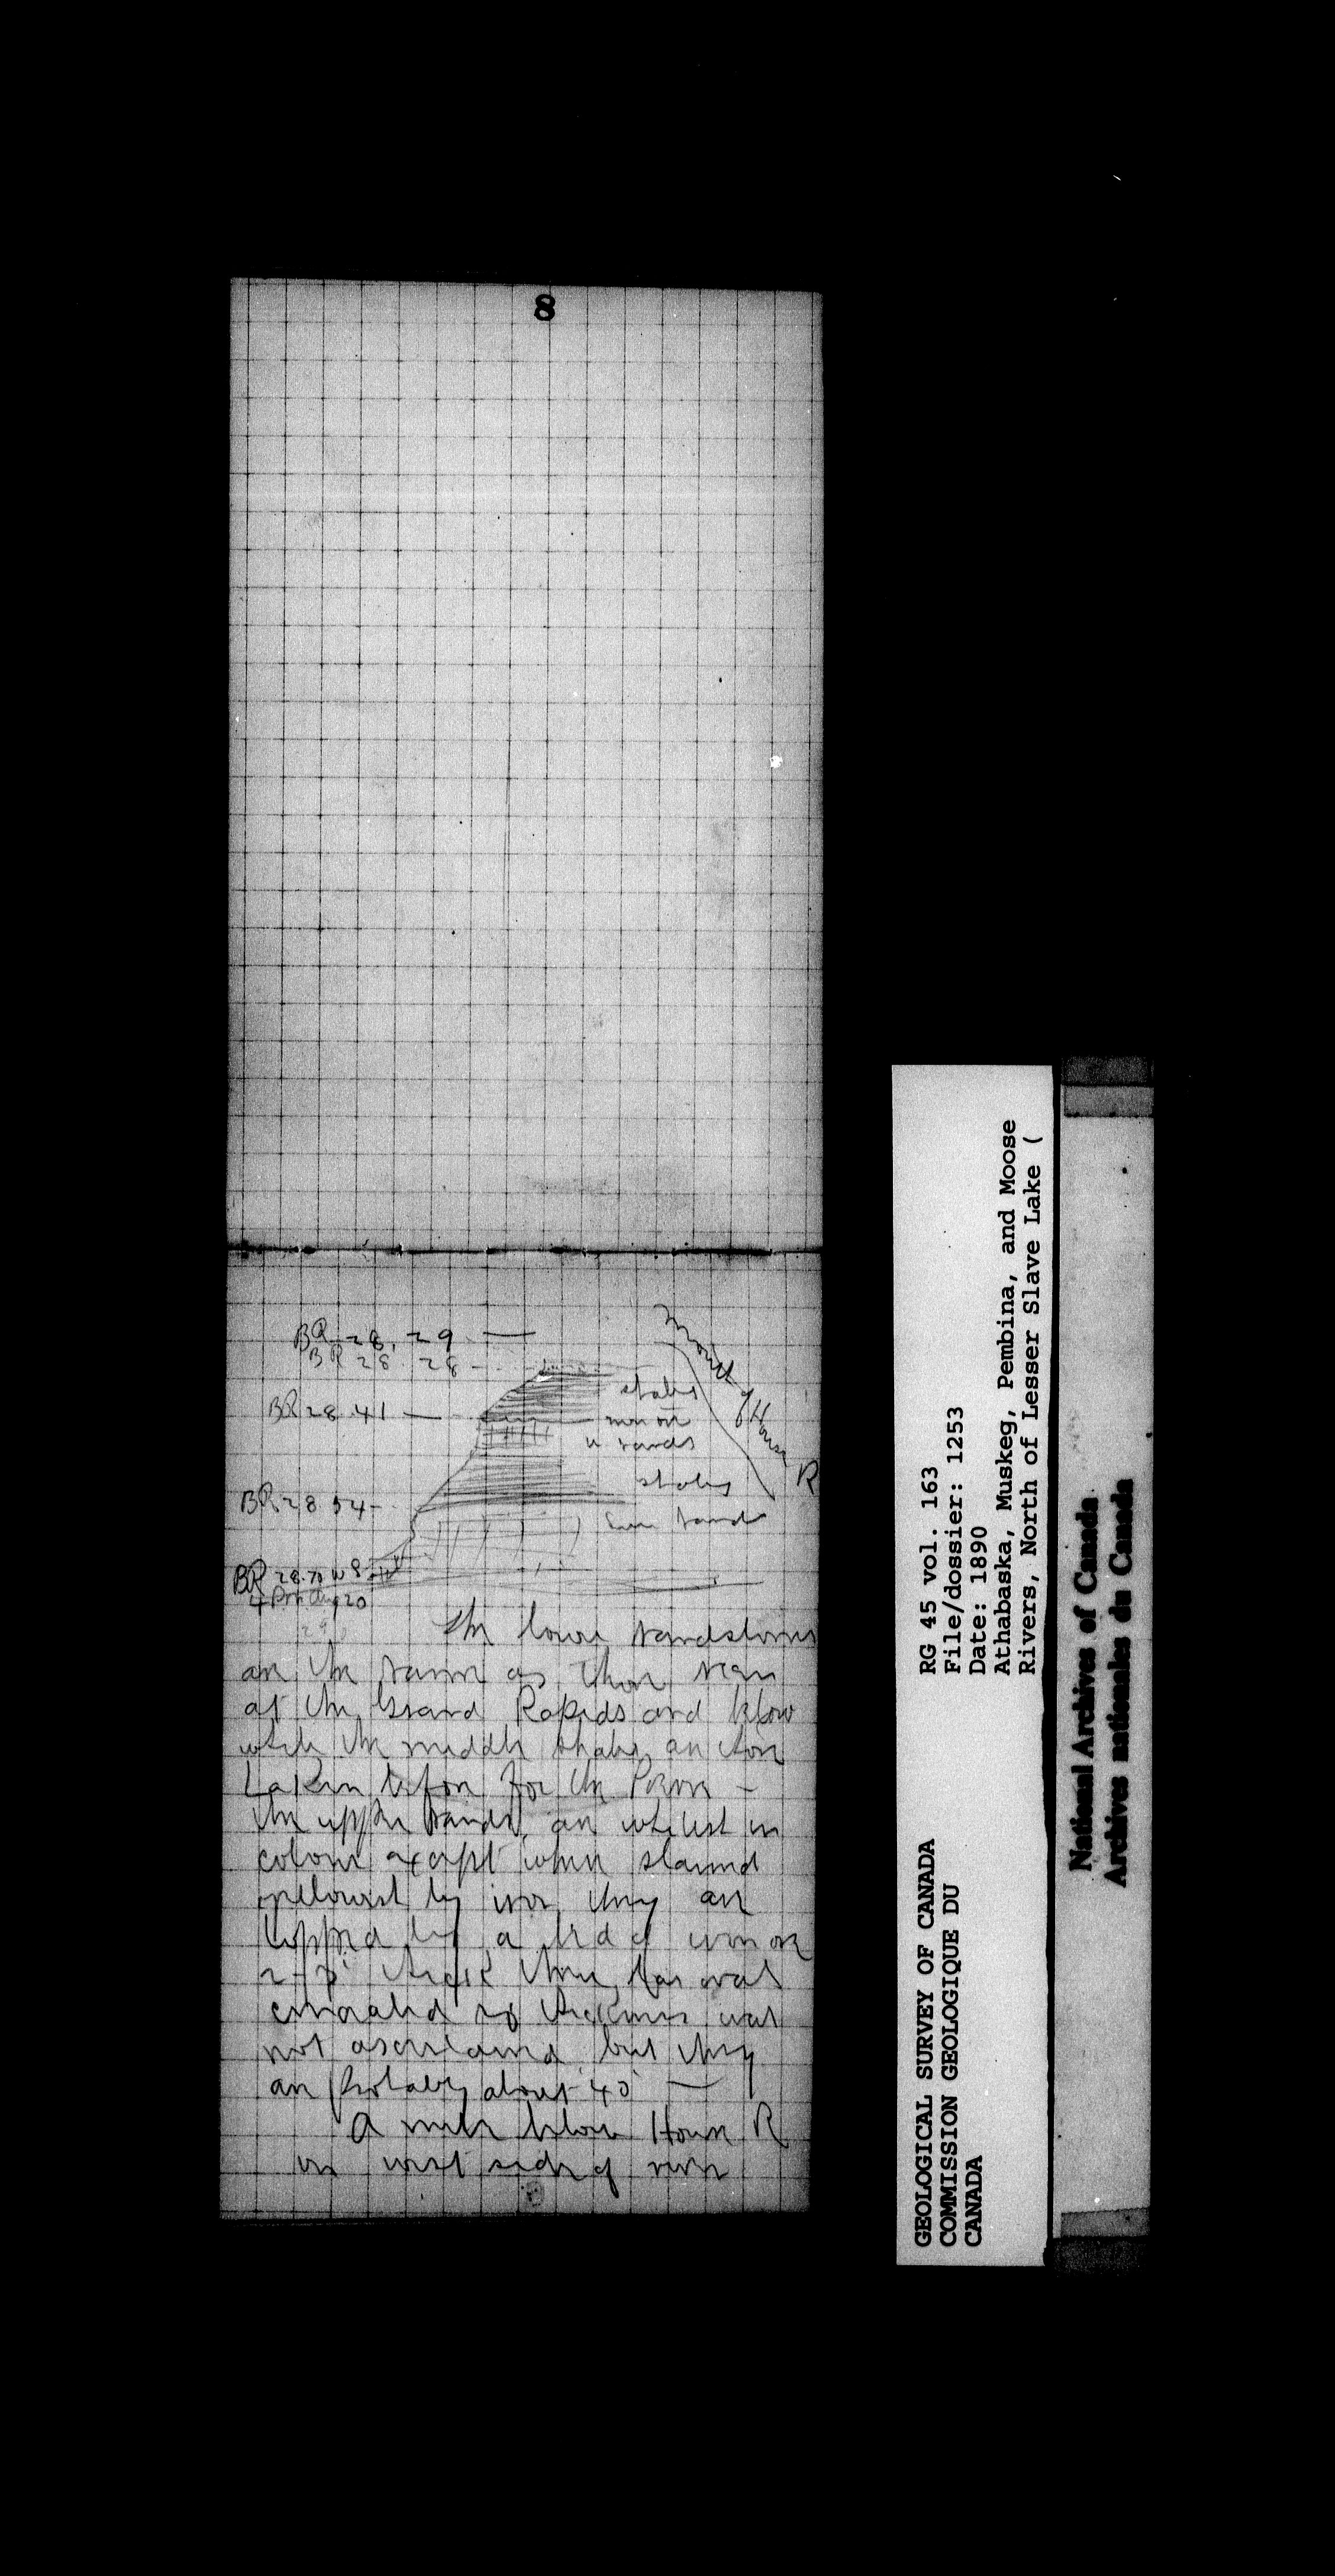 8
BR 28.29 —
BR 28.28 -
shales
BR 28.41 —
iron ore
u sands
shales
BR 28 54 -
low sands
BR 28.70 W S
4 Pm Aug 20
Mouth of House R
The lower sandstones
are the same as those seen
at the Grand Rapids and below
while the middle shales are those
taken before for the
the upper sands are whitest in
colour except when stained
yellowish by iron they are
topped by a bed of iron ore
2-3' thick their base was
concealed so thickness was
not ascertained but they
are probably about 40' —
A mile below House R
on west side of river
GEOLOGICAL SURVEY OF CANADA
COMMISSION GEOLOGIQUE DU
CANADA
RG 45 vol. 163
File/dossier: 1253
Date: 1890
Athabaska, Muskeg, Pembina, and Moose
Rivers, North of Lesser Slave Lake (
National Archives of Canada
Archives nationales du Canada